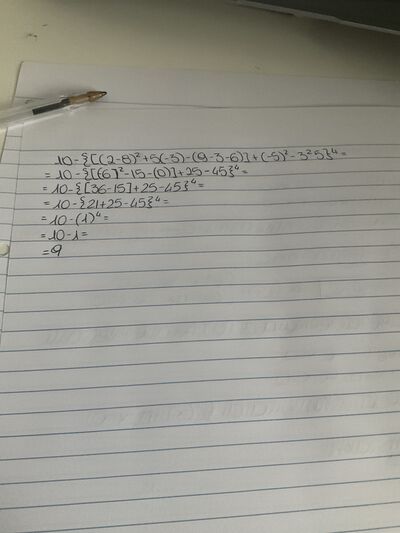 10-{[(2-8)²+5(-3)-(9-3-6)]+(-5)²-3²5}⁴=
=10-{[(-6)²-15-(0)]+25-45}⁴=
=10-{[36-15]+25-45}⁴=
=10-{21+25-45}⁴=
=10-(1)⁴=
=10-1=
=9